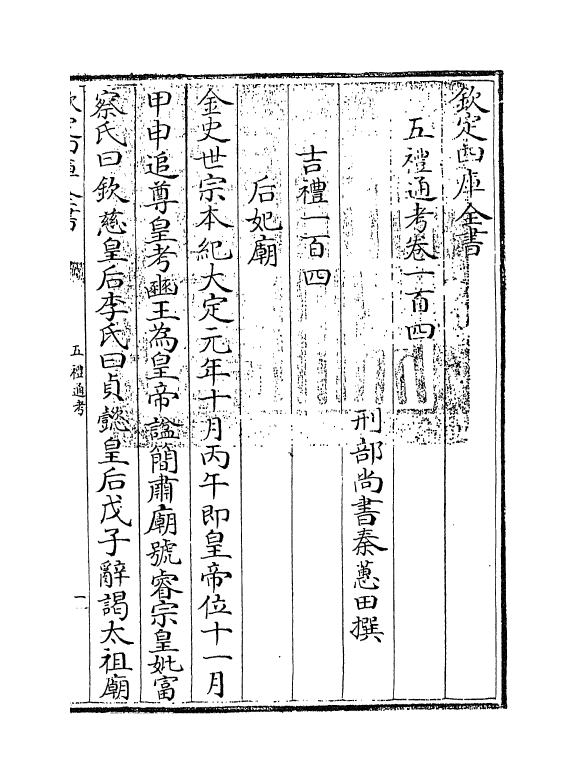 欽定四庫全書
五禮通考卷一百四
刑部尚書秦蕙田撰
吉禮一百四
后妃廟
金史世宗本紀大定元年十月丙午即皇帝位十一月
甲申追尊皇考豳王為皇帝諡簡肅廟號睿宗皇妣富
察氏曰欽慈皇后李氏曰貞懿皇后戊子辭謁太祖廟
欽定四庫全書
五禮通考
一